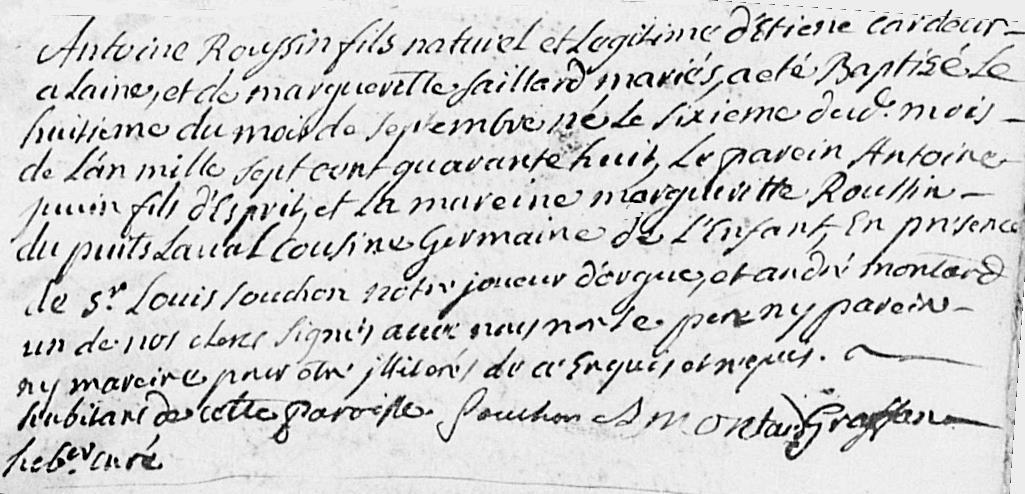 Antoine Roussin fils naturel et Legitime d'Etiene cardeur
a Laine, et de margueritte Saillard mariés, a eté Baptizé Le
huitieme du mois de septembre né Le sixieme dud. mois
de L'an mille sept cent quarante huit, Le parein Antoine
fils d'Esprit, et La mareine margueritte Roussin
du puits Laval Cousine Germaine de L'Enfant, En presence
de Sr. Louis Souchon notre joueur d'orgue, et andré montard
un de nos clercs signés avec nous non Le pere ny parein
ny mareine pour etre jlliterés de ce Enquis et requis.
habitans de cette paroisse. Souchon A montard
curé